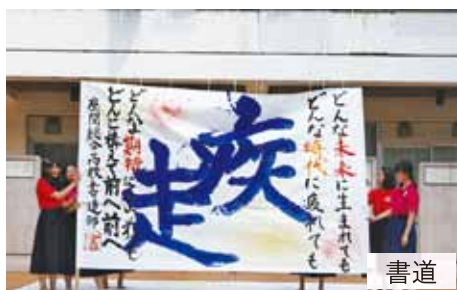 どんな未来に生まれても
どんな時代に疲れても
疾走
どんな期待
どこ
前へ前へ
座間総合高校書道部
書道